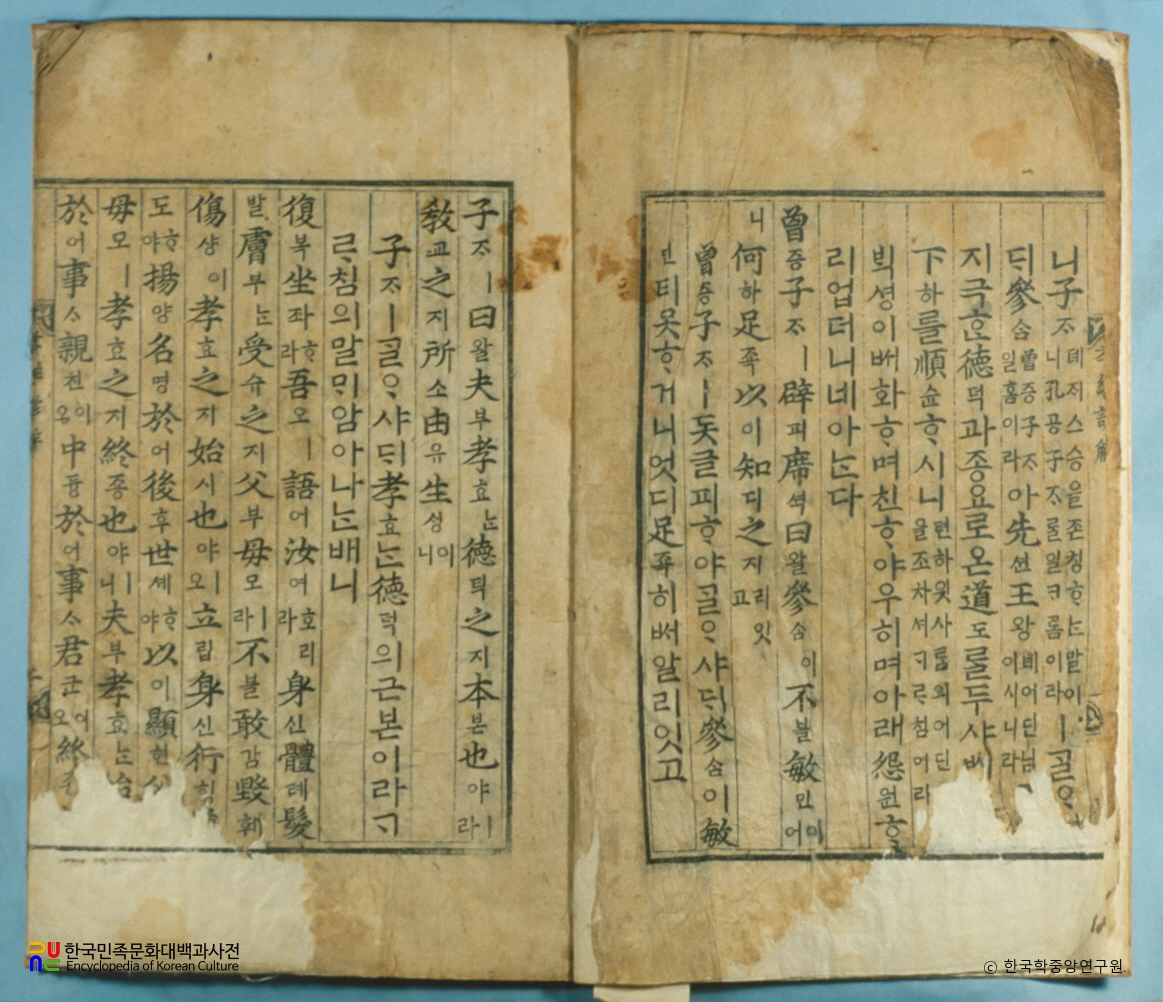 니子ᄌᆞ니孔공子ᄌᆞᄅᆞᆯ닐ᄏᆞ롬이라ㅣᄀᆞᆯᄋᆞ
ᄃᆡ參ᄉᆞᆷ曾증子ᄌᆞ일홈이라아先션王왕
지극ᄒᆞᆫ德덕과종요로온道도ᄅᆞᆯ두샤
下하를順슌ᄒᆞ시니텬하읫사ᄅᆞᆷ의어딘을조차셔ᄀᆞᄅᆞ침어라
ᄇᆡᆨ셩이ᄡᅥ화ᄒᆞ며친ᄒᆞ야우히며아래怨원ᄒᆞ
리업더니네아ᄂᆞᆫ다
曾증子ᄌᆞㅣ辟피席셕曰왈參ᄉᆞᆷ이不블敏민이어
니何하足족以이知디之지리잇고
曾증子ᄌᆞㅣ돗글피ᄒᆞ야ᄀᆞᆯᄋᆞ샤ᄃᆡ參ᄉᆞᆷ이敏
민티못ᄒᆞ거니엇디足죡히ᄡᅥ알리잇고
子ᄌᆞㅣ曰왈夫부孝효ᄂᆞᆫ德덕之지本본也야ㅣ라
敎교之지所소由유生ᄉᆡᆼ이니
子ᄌᆞㅣᄀᆞᆯᄋᆞ샤ᄃᆡ孝효ᄂᆞᆫ德덕의근본이라ᄀᆞ
ᄅᆞ침의말ᄆᆡ암아나ᄂᆞᆫ배니
復부坐좌ᄒᆞ라吾오ㅣ語어汝여호리라身신體톄髮
발膚부ᄂᆞᆫ受슈之지父부母모ㅣ라不블敢감毁훼
傷샹이孝효之지始시也야ㅣ오立립身신行ᄒᆡᆼ
도ᄒᆞ야揚양名명於어後후世셰ᄒᆞ야以이顯현
母모ㅣ孝효之지終죵也야ㅣ니夫부孝효ᄂᆞᆫ始
於어事ᄉᆞ親친이오中듕於어事ᄉᆞ君군이오終죵
한국민족문화대백과사전
Encyclopedia of Korean Culture
ⓒ 한국학중앙연구원.